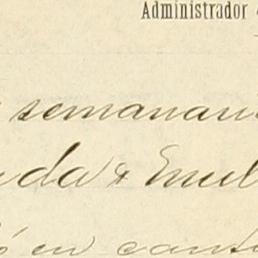 Administrador
semanari
da & Emil
ó en cant